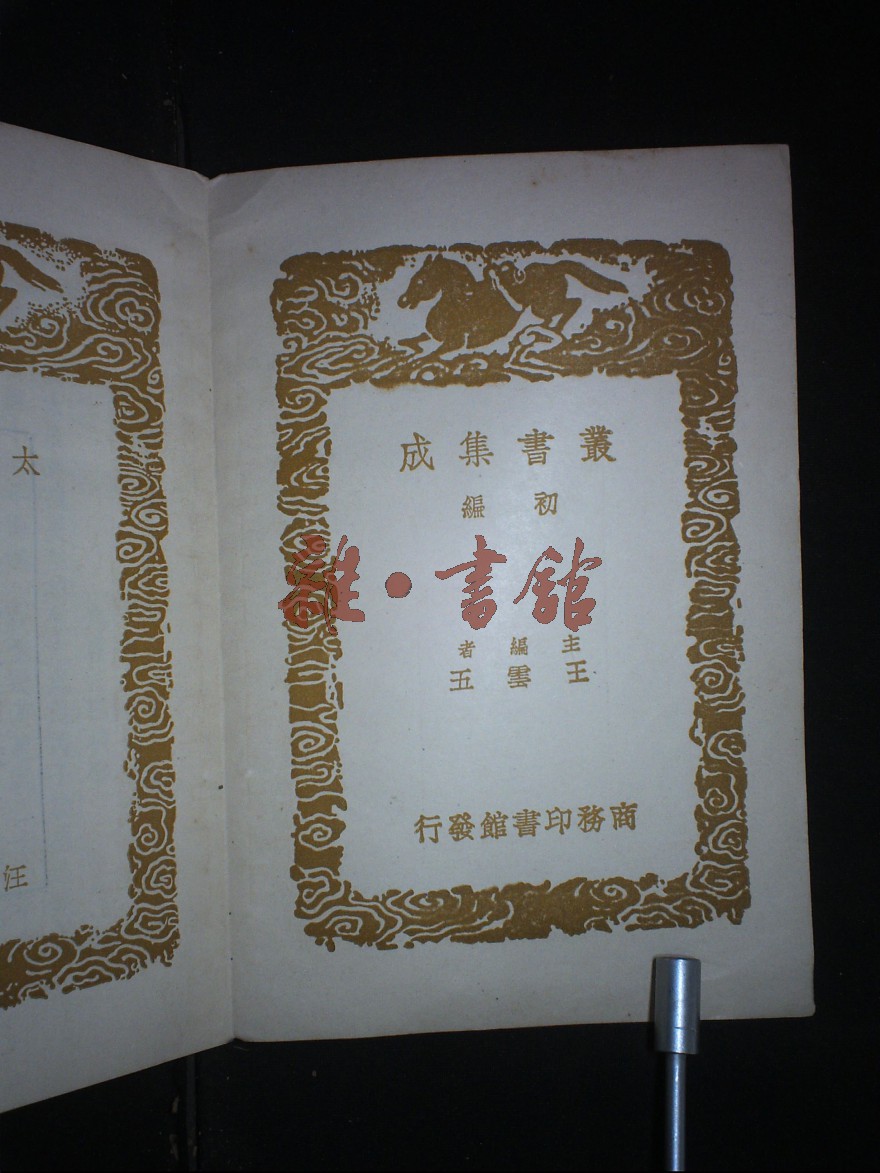 叢書集成
初編
雒·書館
主編者
王雲五
商務印書館發行
太
汪